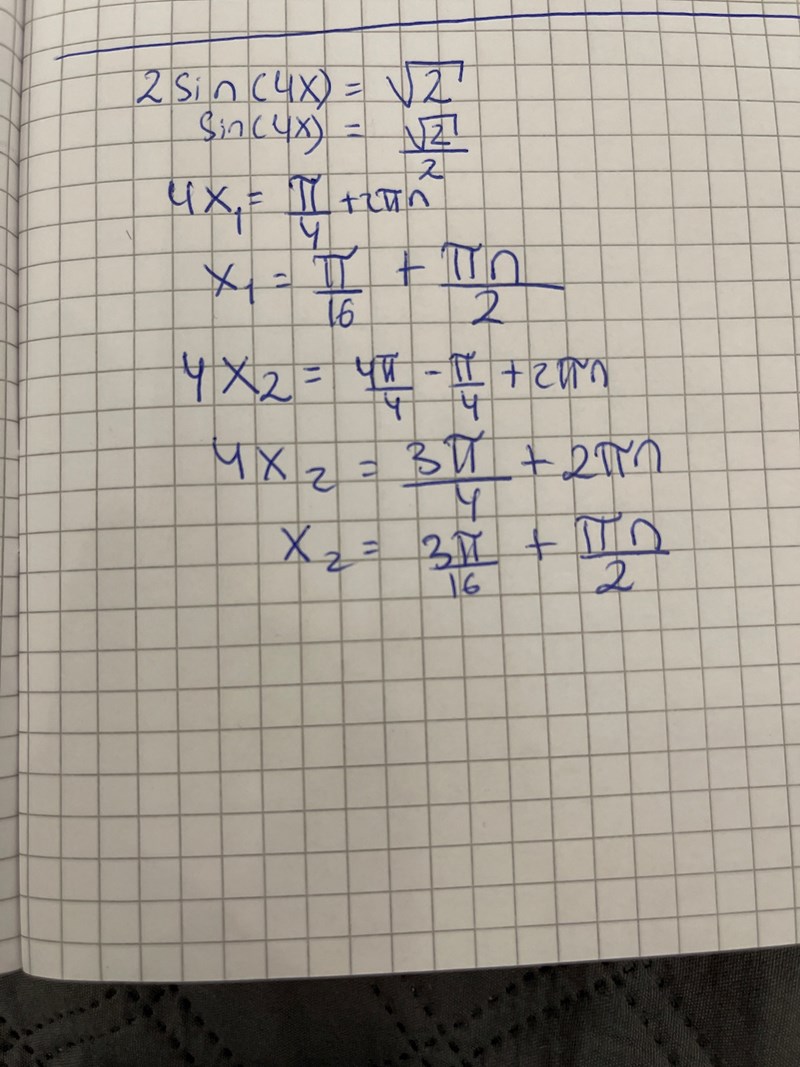 2 sin(4x) = √2
sin(4x) = √2/2
4x₁ = π/4 + 2πn
x₁ = π/16 + πn/2
4x₂ = 4π/4 - π/4 + 2πn
4x₂ = 3π/4 + 2πn
x₂ = 3π/16 + πn/2